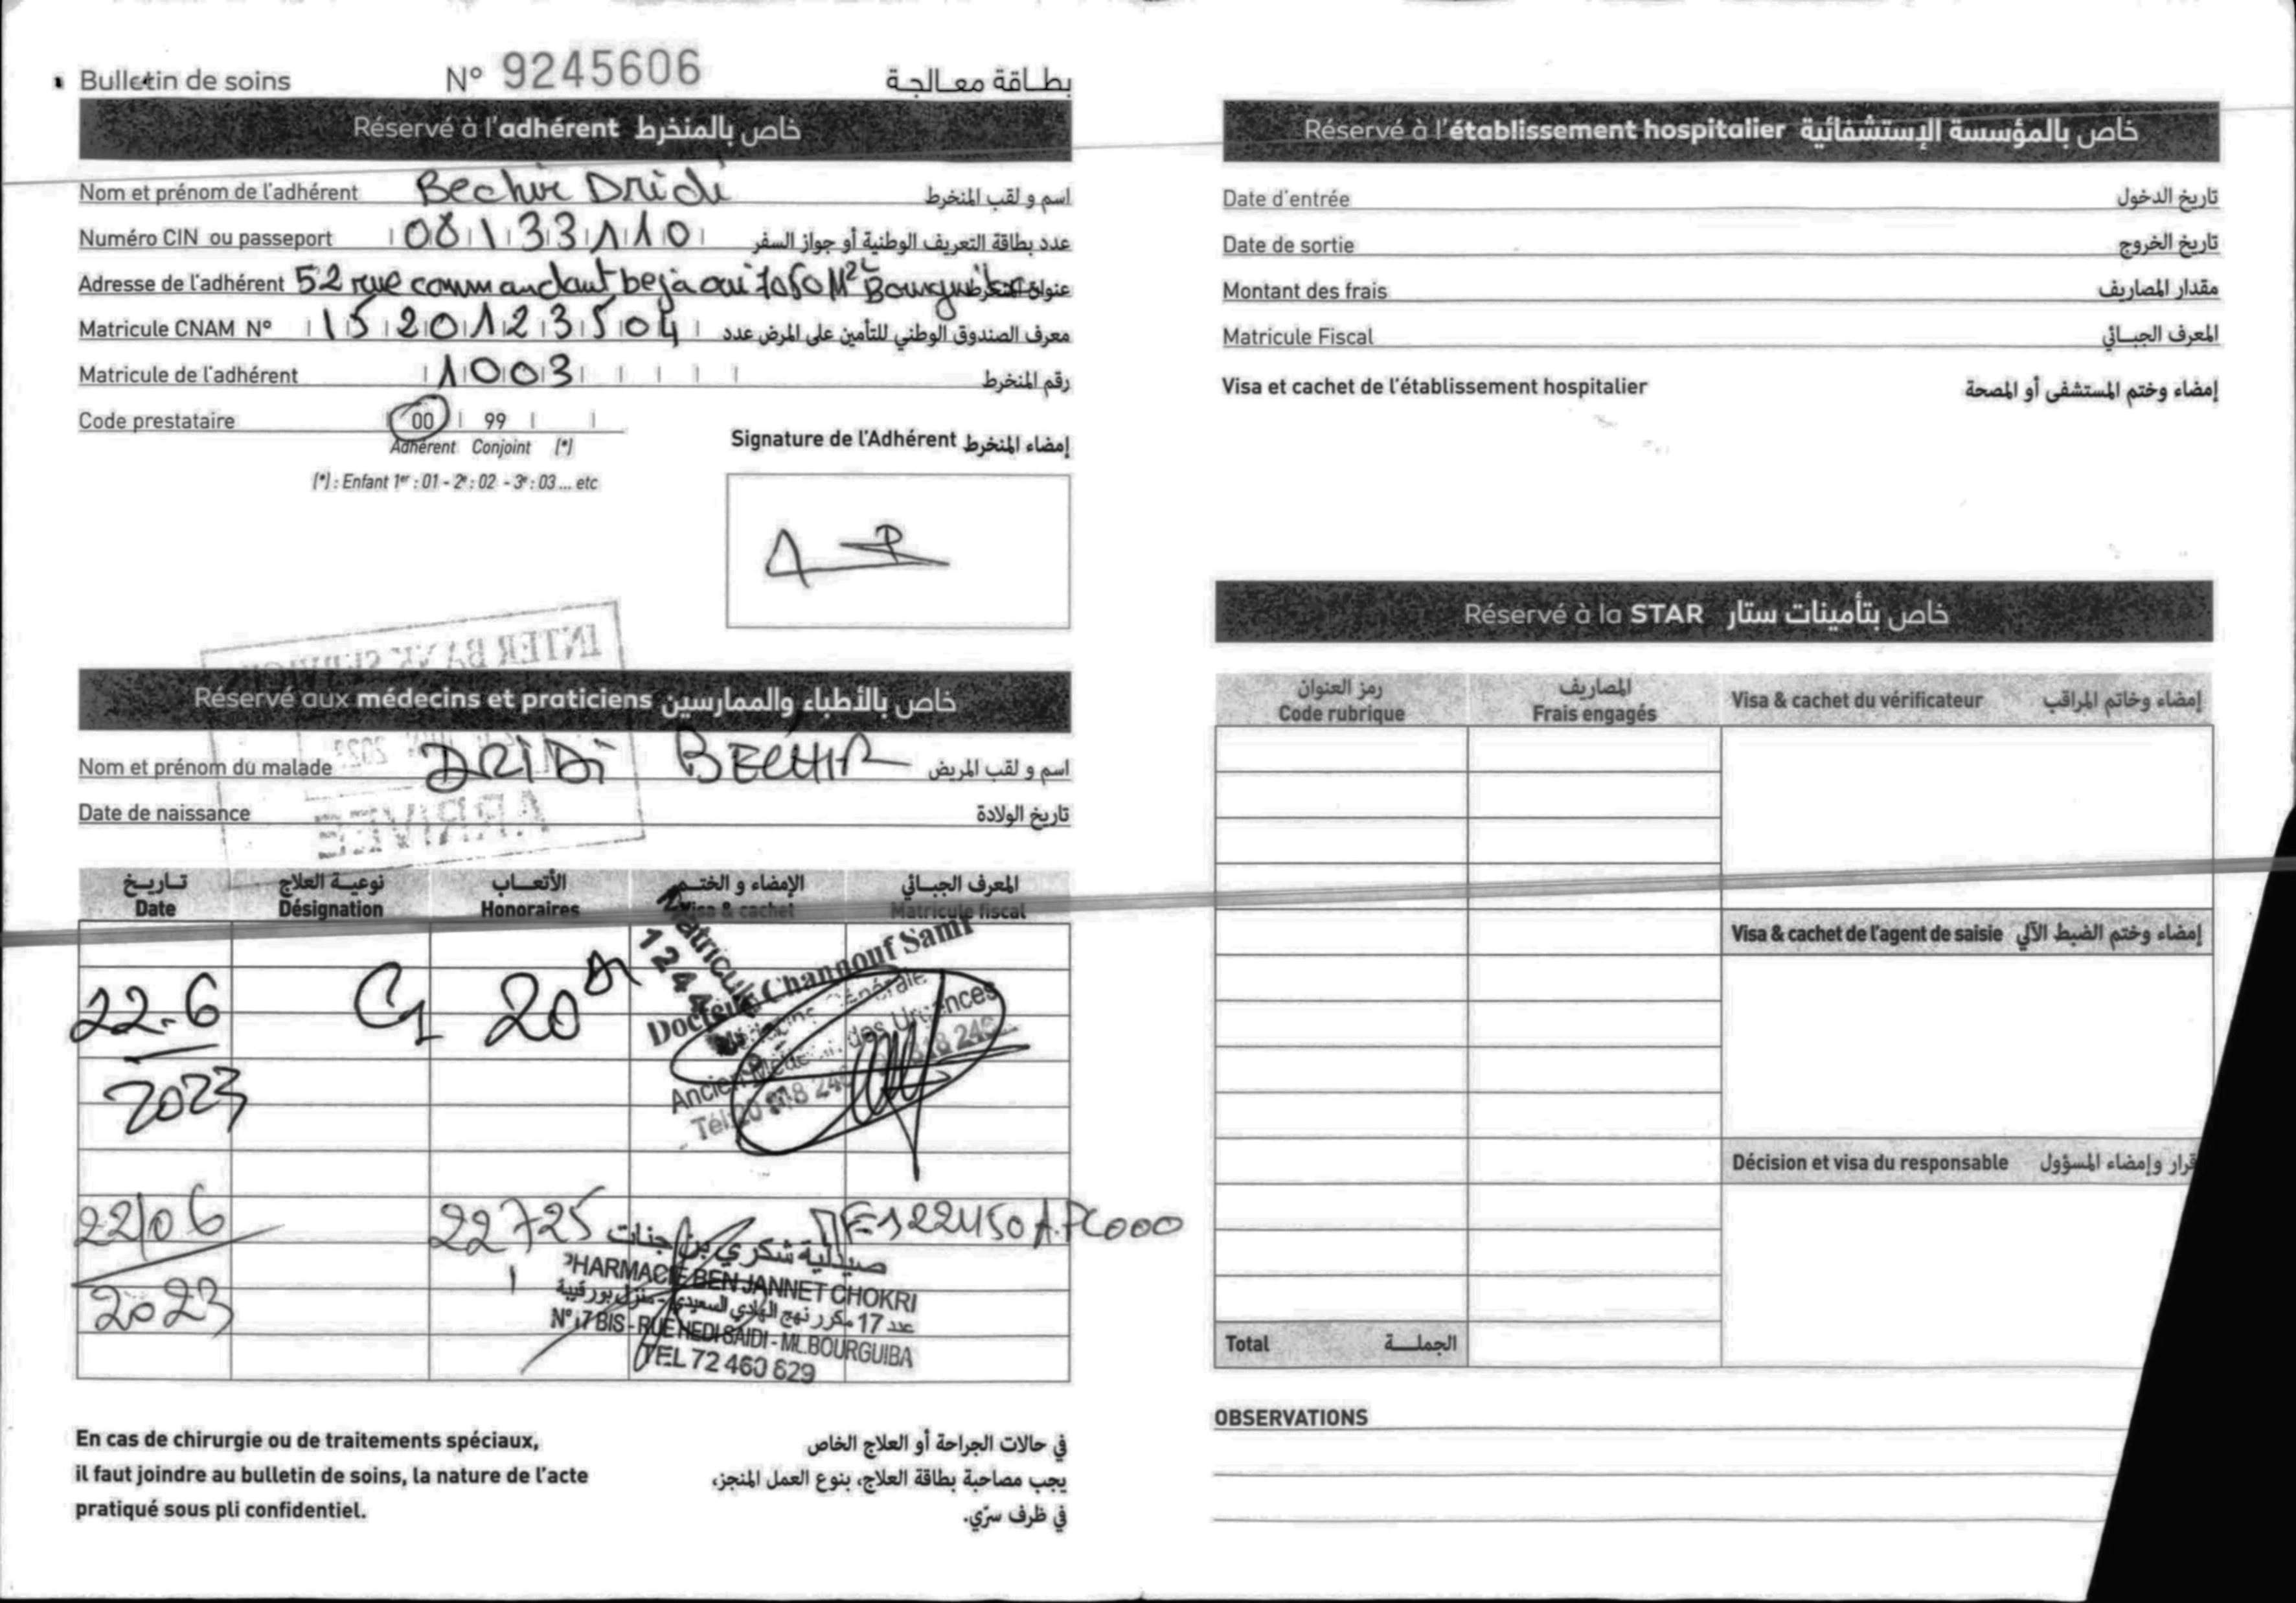 Bulletin de soins N° 9245606 بطاقة معالجة
Réservé à l'adhérent خاص بالمنخرط
Nom et prénom de l'adhérent Bechir Dridi اسم و لقب المنخرط
Numéro CIN ou passeport 08133110 عدد بطاقة التعريف الوطنية أو جواز السفر
Adresse de l'adhérent 52 rue commandant bejaoui 7050 Mel Bourguiba عنوان المنخرط
Matricule CNAM N° 1520123504 معرف الصندوق الوطني للتأمين على المرض عدد
Matricule de l'adhérent 1003 رقم المنخرط
Code prestataire 00 99
Adhérent Conjoint (*)
(*) : Enfant 1er : 01 - 2e : 02 - 3e : 03 ... etc
Signature de l'Adhérent إمضاء المنخرط
INTER BANK SERVICES
2022
ARRIVEE
Réservé aux médecins et praticiens خاص بالأطباء والممارسين
Nom et prénom du malade DRIDI BECHIR اسم و لقب المريض
Date de naissance تاريخ الولادة
تاريخ نوعية العلاج الأتعاب الإمضاء و الختم المعرف الجبائي
Date Désignation Honoraires Visa & cachet Matricule fiscal
22-6 2023 C1 20
Matricule
Docteur Channouf Sami
Médecine Générale
Ancien Médecin des Urgences
22/06 2023 22,725
صيدلية شكري بن جنات
PHARMACIE BEN JANNET CHOKRI
عدد 17 مكرر نهج الهادي السعيدي - منزل بورقيبة
N° 17 BIS - RUE HEDI SAIDI - ML.BOURGUIBA
TEL 72 460 629
En cas de chirurgie ou de traitements spéciaux,
il faut joindre au bulletin de soins, la nature de l'acte
pratiqué sous pli confidentiel.
في حالات الجراحة أو العلاج الخاص
يجب مصاحبة بطاقة العلاج، بنوع العمل المنجز،
في ظرف سرّي.
Réservé à l'établissement hospitalier خاص بالمؤسسة الإستشفائية
Date d'entrée تاريخ الدخول
Date de sortie تاريخ الخروج
Montant des frais مقدار المصاريف
Matricule Fiscal المعرف الجبائي
Visa et cachet de l'établissement hospitalier إمضاء وختم المستشفى أو المصحة
Réservé à la STAR خاص بتأمينات ستار
رمز العنوان المصاريف
Code rubrique Frais engagés Visa & cachet du vérificateur إمضاء وخاتم المراقب
Visa & cachet de l'agent de saisie إمضاء وختم الضبط الآلي
Décision et visa du responsable قرار وإمضاء المسؤول
Total الجملة
OBSERVATIONS